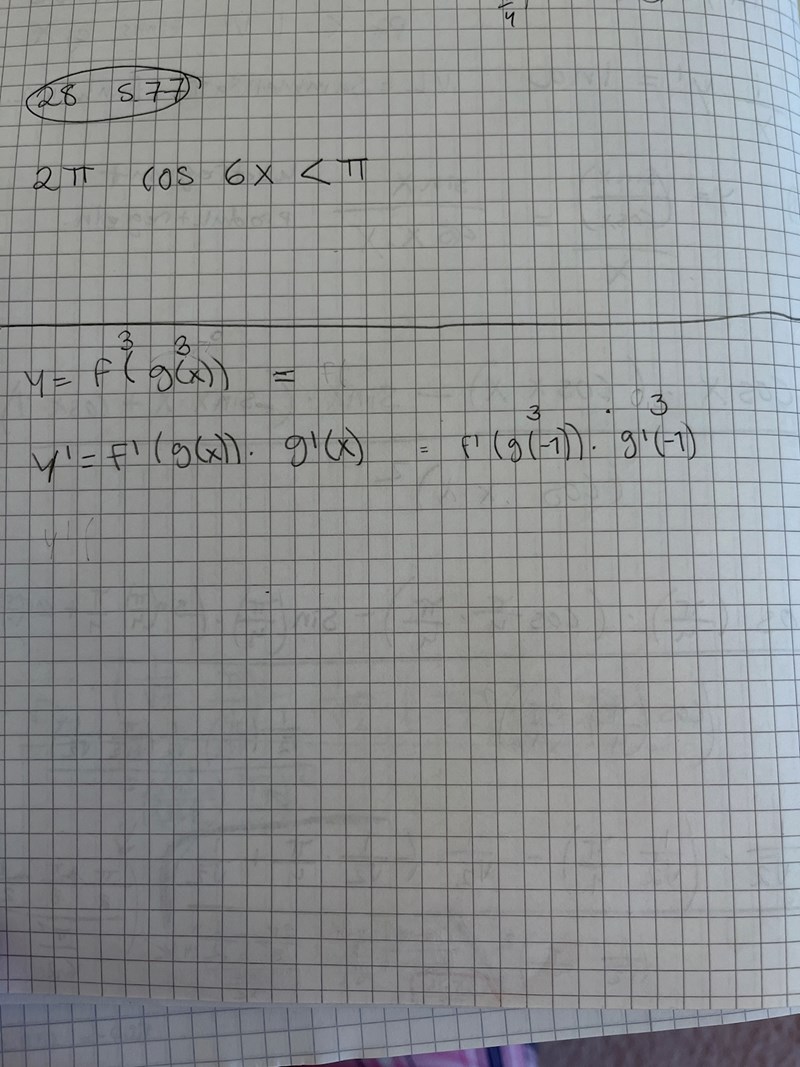 π/4
28 s.77
2π cos 6x < π
3 3
y = f(g(x)) =
3 3
y' = f'(g(x)) · g'(x) = f'(g(-1)) · g'(-1)
y'(